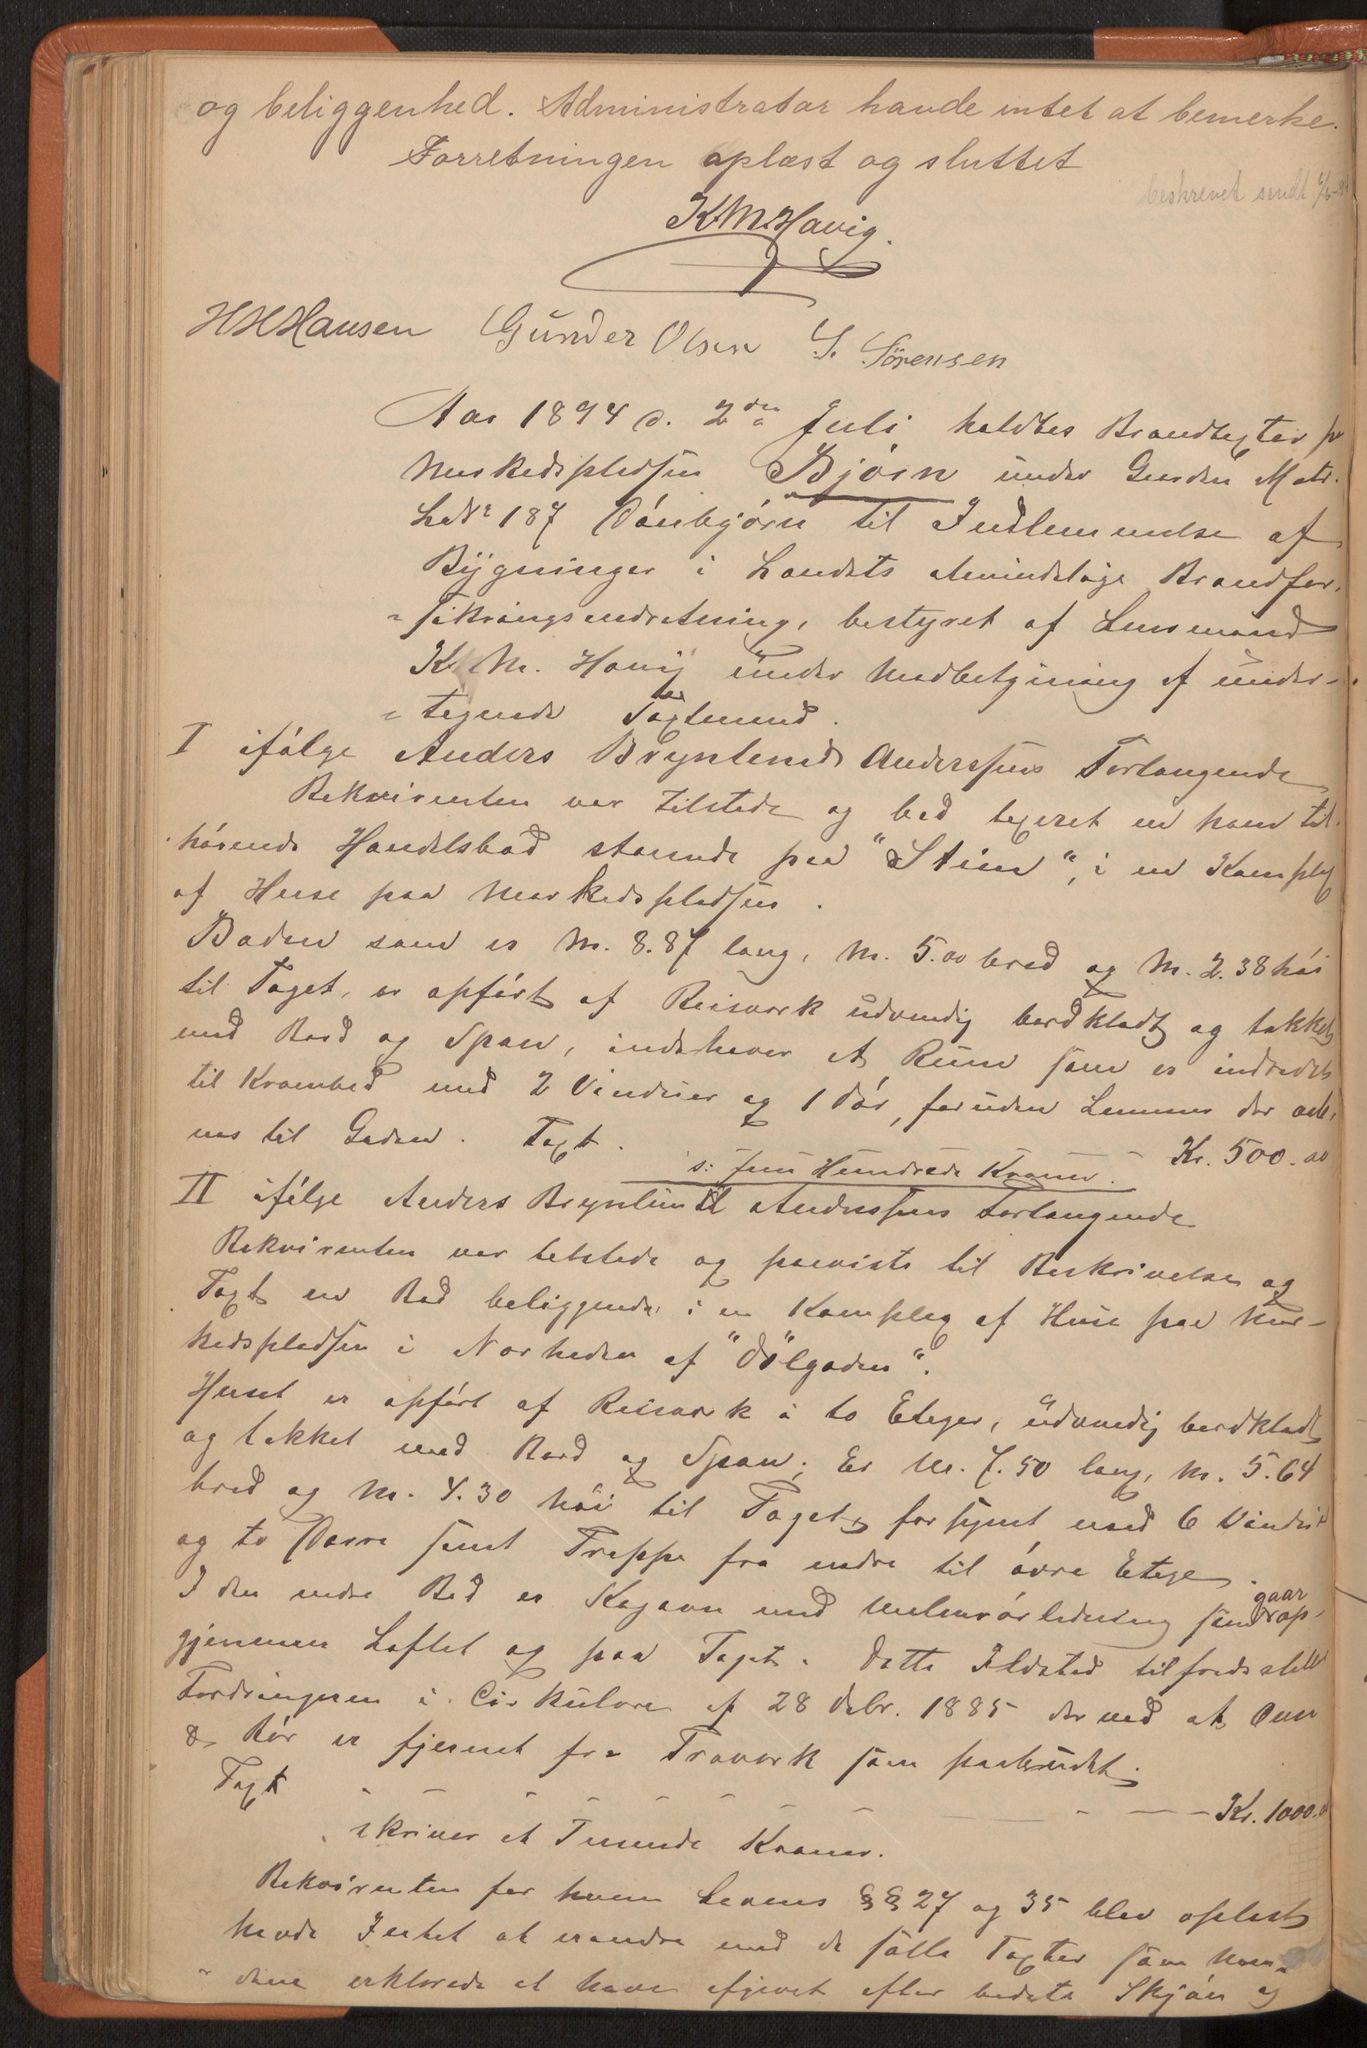 og beliggenhed. Administrator havde intet at bemerke.
Forretningen oplæst og sluttet
beskrevet sendt
K M Havig.
H H Hansen Gunder Olsen S. Sörensen
Aar 1894 d. 2den Juli holdtes Brandtaxter på
Markedspladsen Bjørn under Gaarden Matr.
LNr 187 Dønbjørn til Indlemmelse af
Bygninger i Landets almindelige Brandfor-
sikringsindretning, bestyret af Lensmand
K. M. Havig under Medbetjening af under-
tegnede Taxtmænd.
I ifølge Anders Brynlund Anderssens Forlangende
Rekvirenten var tilstede og bad taxeret en ham til-
hørende Handelsbod staaende paa "Stien", i en Komplex
af Huse paa Markedspladsen.
Boden som er M. 8.87 lang, M. 5.00 bred og M. 2.38 høi
til Taget, er opført af Reisverk udvendig bordklædt og tækket
med Bord og Spaan, indehaver et Rum som er indredet
til Krambod med 2 Vinduer og 1 Dør, foruden Lemmer der aab-
nes til Gaden. Taxt. Kr. 500.00
s: fem Hundrede Kroner.
II ifølge Anders Brynlund Anderssens Forlangende
Rekvirenten var tilstede og paaviste til Beskrivelse og
Taxt en Bod beliggende i en Komplex af Huse paa Mar-
kedspladsen i Nærheden af "Dölgaden".
Huset er opført af Reisverk i to Etager, udvendig bordklædt
og tækket med Bord og Spaan; Er M. 7.50 lang, M. 5.64
bred og M. 4.30 høi til Taget, forsynet med 6 Vinduer
og to Dørre samt Trappe fra nedre til øvre Etage.
I den nedre Bod er Kogeovn med rørledning som gaar op-
gjennem Loftet og paa Taget. Dette Ildsted tilfredsstiller
Fordringerne i Cirkulære af 28 Debr. 1885 derved at Ovn
& Rør er fjernet fra Træverk som paabudet.
Taxt Kr. 1000.00
skriver et Tusende Kroner.
Rekvirenten for hvem Lovens §§ 27 og 35 blev oplæst
havde Intet at erindre mod de satte Taxter som Mæn-
dene erklærede at have afgivet efter bedste Skjøn og